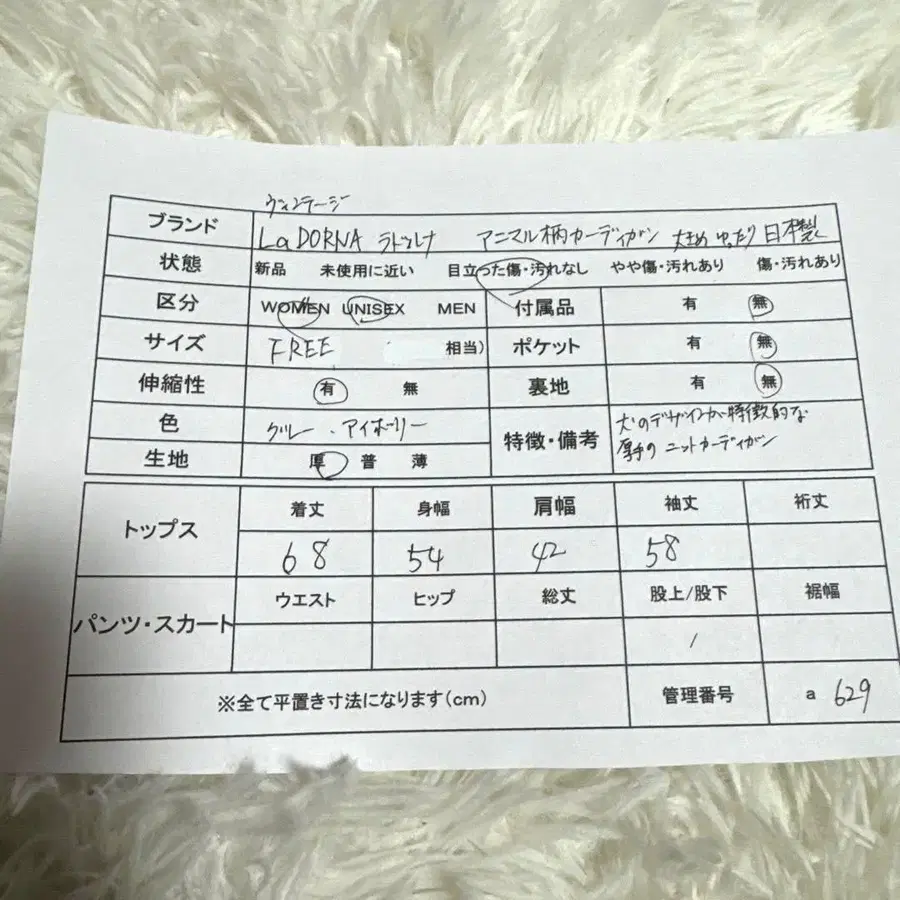 ヴィンテージ
ブランド LaDORNA ラドルナ アニマル柄カーディガン 大きめ ゆったり 日本製
状態 新品 未使用に近い 目立った傷・汚れなし やや傷・汚れあり 傷・汚れあり
区分 WOMEN UNISEX MEN 付属品 有 無
サイズ FREE 相当) ポケット 有 無
伸縮性 有 無 裏地 有 無
色 グレー・アイボリー 特徴・備考 犬のデザインが特徴的な
厚手のニットカーディガン
生地 厚 普 薄
トップス 着丈 身幅 肩幅 袖丈 裄丈
68 54 42 58
パンツ・スカート ウエスト ヒップ 総丈 股上/股下 裾幅
/
※全て平置き寸法になります(cm) 管理番号 a 629